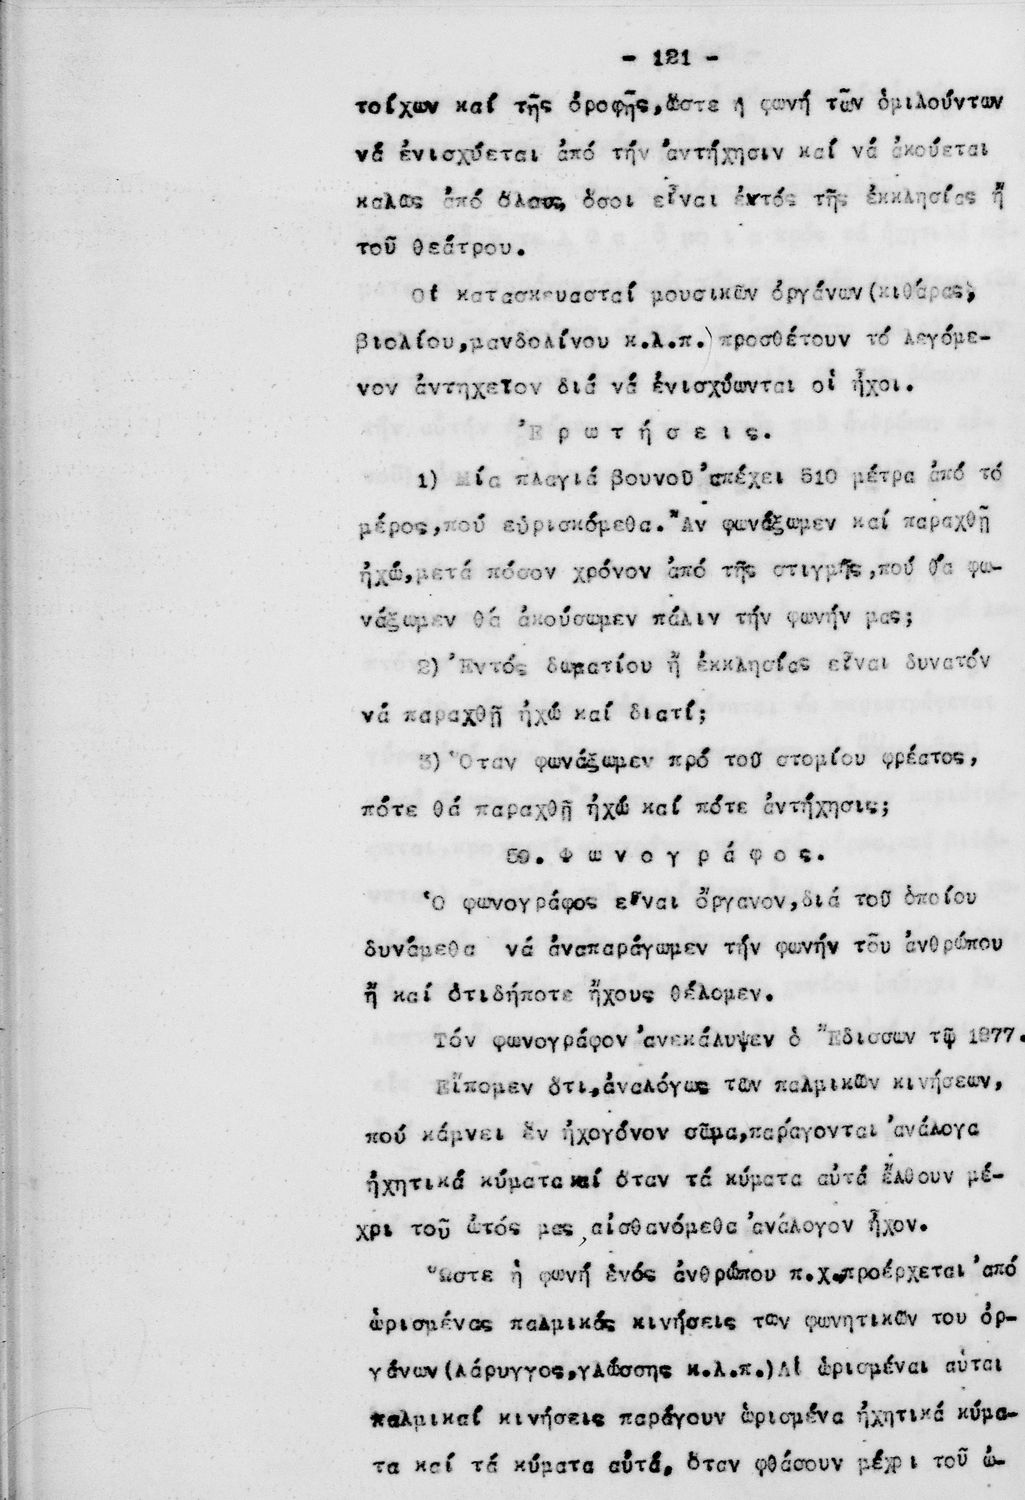 - 121 -
τοίχων καί τῆς ὀροφῆς,ὥστε ἡ φωνή τῶν ὁμιλούντων
νά ἐνισχύεται ἀπό τήν ἀντήχησιν καί νά ἀκούεται
καλῶς ἀπό ὅλους, ὅσοι εἶναι ἐντός τῆς ἐκκλησίας ἤ
τοῦ θεάτρου.
Οἱ κατασκευασταί μουσικῶν ὀργάνων(κιθάρας,
βιολίου,μανδολίνου κ.λ.π.)προσθέτουν τό λεγόμε-
νον ἀντηχεῖον διά νά ἐνισχύωνται οἱ ἦχοι.
Ἐ ρ ω τ ή σ ε ι ς.
1) Μία πλαγιά βουνοῦ ἀπέχει 510 μέτρα ἀπό τό
μέρος,πού εὑρισκόμεθα. Ἄν φωνάξωμεν καί παραχθῇ
ἠχώ,μετά πόσον χρόνον ἀπό τῆς στιγμῆς,πού θά φω-
νάξωμεν θά ἀκούσωμεν πάλιν τήν φωνήν μας;
2) Ἐντός δωματίου ἤ ἐκκλησίας εἶναι δυνατόν
νά παραχθῇ ἠχώ καί διατί;
3) Ὅταν φωνάξωμεν πρό τοῦ στομίου φρέατος,
πότε θά παραχθῇ ἠχώ καί πότε ἀντήχησις;
59. Φ ω ν ο γ ρ ά φ ο ς.
Ὁ φωνογράφος εἶναι ὄργανον,διά τοῦ ὁποίου
δυνάμεθα νά ἀναπαράγωμεν τήν φωνήν τοῦ ἀνθρώπου
ἤ καί ὁτιδήποτε ἤχους θέλομεν.
Τόν φωνογράφον ἀνεκάλυψεν ὁ Ἔδισσων τῷ 1877.
Εἴπομεν ὅτι,ἀναλόγως τῶν παλμικῶν κινήσεων,
πού κάμνει ἕν ἠχογόνον σῶμα,παράγονται ἀνάλογα
ἠχητικά κύματα καί ὅταν τά κύματα αὐτά ἔλθουν μέ-
χρι τοῦ ὠτός μας,αἰσθανόμεθα ἀνάλογον ἦχον.
Ὥστε ἡ φωνή ἑνός ἀνθρώπου π.χ.προέρχεται ἀπό
ὡρισμένας παλμικάς κινήσεις τῶν φωνητικῶν του ὀρ-
γάνων(λάρυγγος,γλώσσης κ.λ.π.)Αἱ ὡρισμέναι αὗται
παλμικαί κινήσεις παράγουν ὡρισμένα ἠχητικά κύμα-
τα καί τά κύματα αὐτά, ὅταν φθάσουν μέχρι τοῦ ὠ-